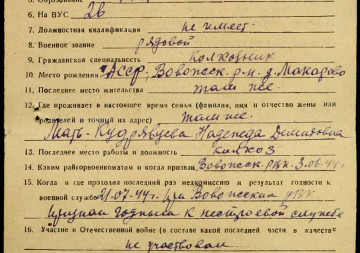 6. На ВУС 26
7. Должностная квалификация не имеет
8. Военное звание рядовой
9. Гражданская специальность колхозник
10. Место рождения АССР, р-н, д. Макарово
11. Последнее место жительства там же
12. Где проживает в настоящее время семья (фамилия, имя и отчество жены или
родителей и точный их адрес) там же.
Мать - Кудрявцева Надежда
13. Последнее место работы и должность колхоз
14. Каким райгорвоенкоматом и когда призван РВК
15. Когда и где проходил последний раз медкомиссию и результат годности к
военной службе 21.07.44г. при РВК
признан годным к нестроевой службе
16. Участие в Отечественной войне (в составе какой последней части в качестве
не участвовал